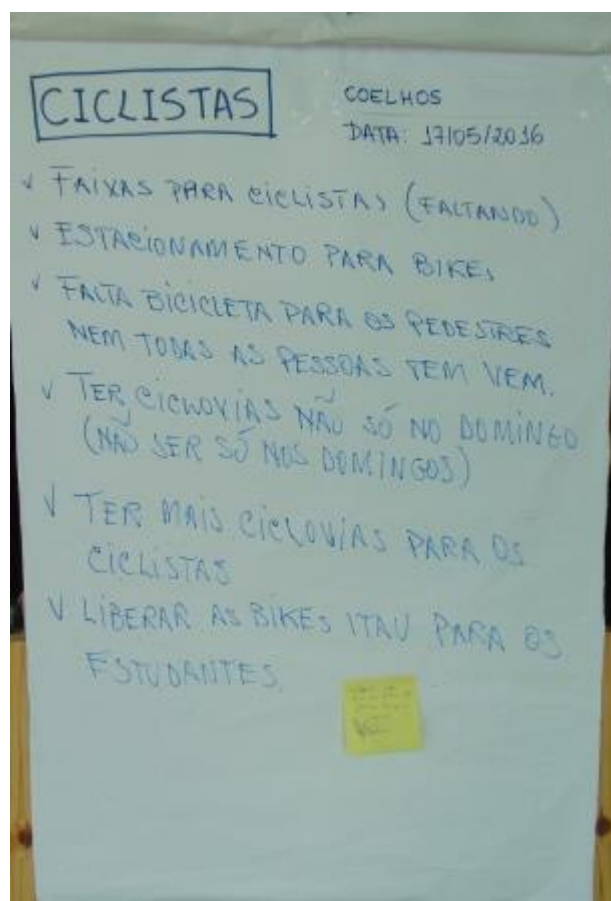 CICLISTAS
COELHOS
DATA: 17/05/2016
√ FAIXAS PARA CICLISTAS (FALTANDO)
√ ESTACIONAMENTO PARA BIKES
√ FALTA BICICLETA PARA OS PEDESTRES
NEM TODAS AS PESSOAS TEM VEM.
√ TER CICLOVIAS NÃO SÓ NO DOMINGO
(NÃO SER SÓ NOS DOMINGOS)
√ TER MAIS CICLOVIAS PARA OS
CICLISTAS
√ LIBERAR AS BIKES ITAU PARA OS
ESTUDANTES.